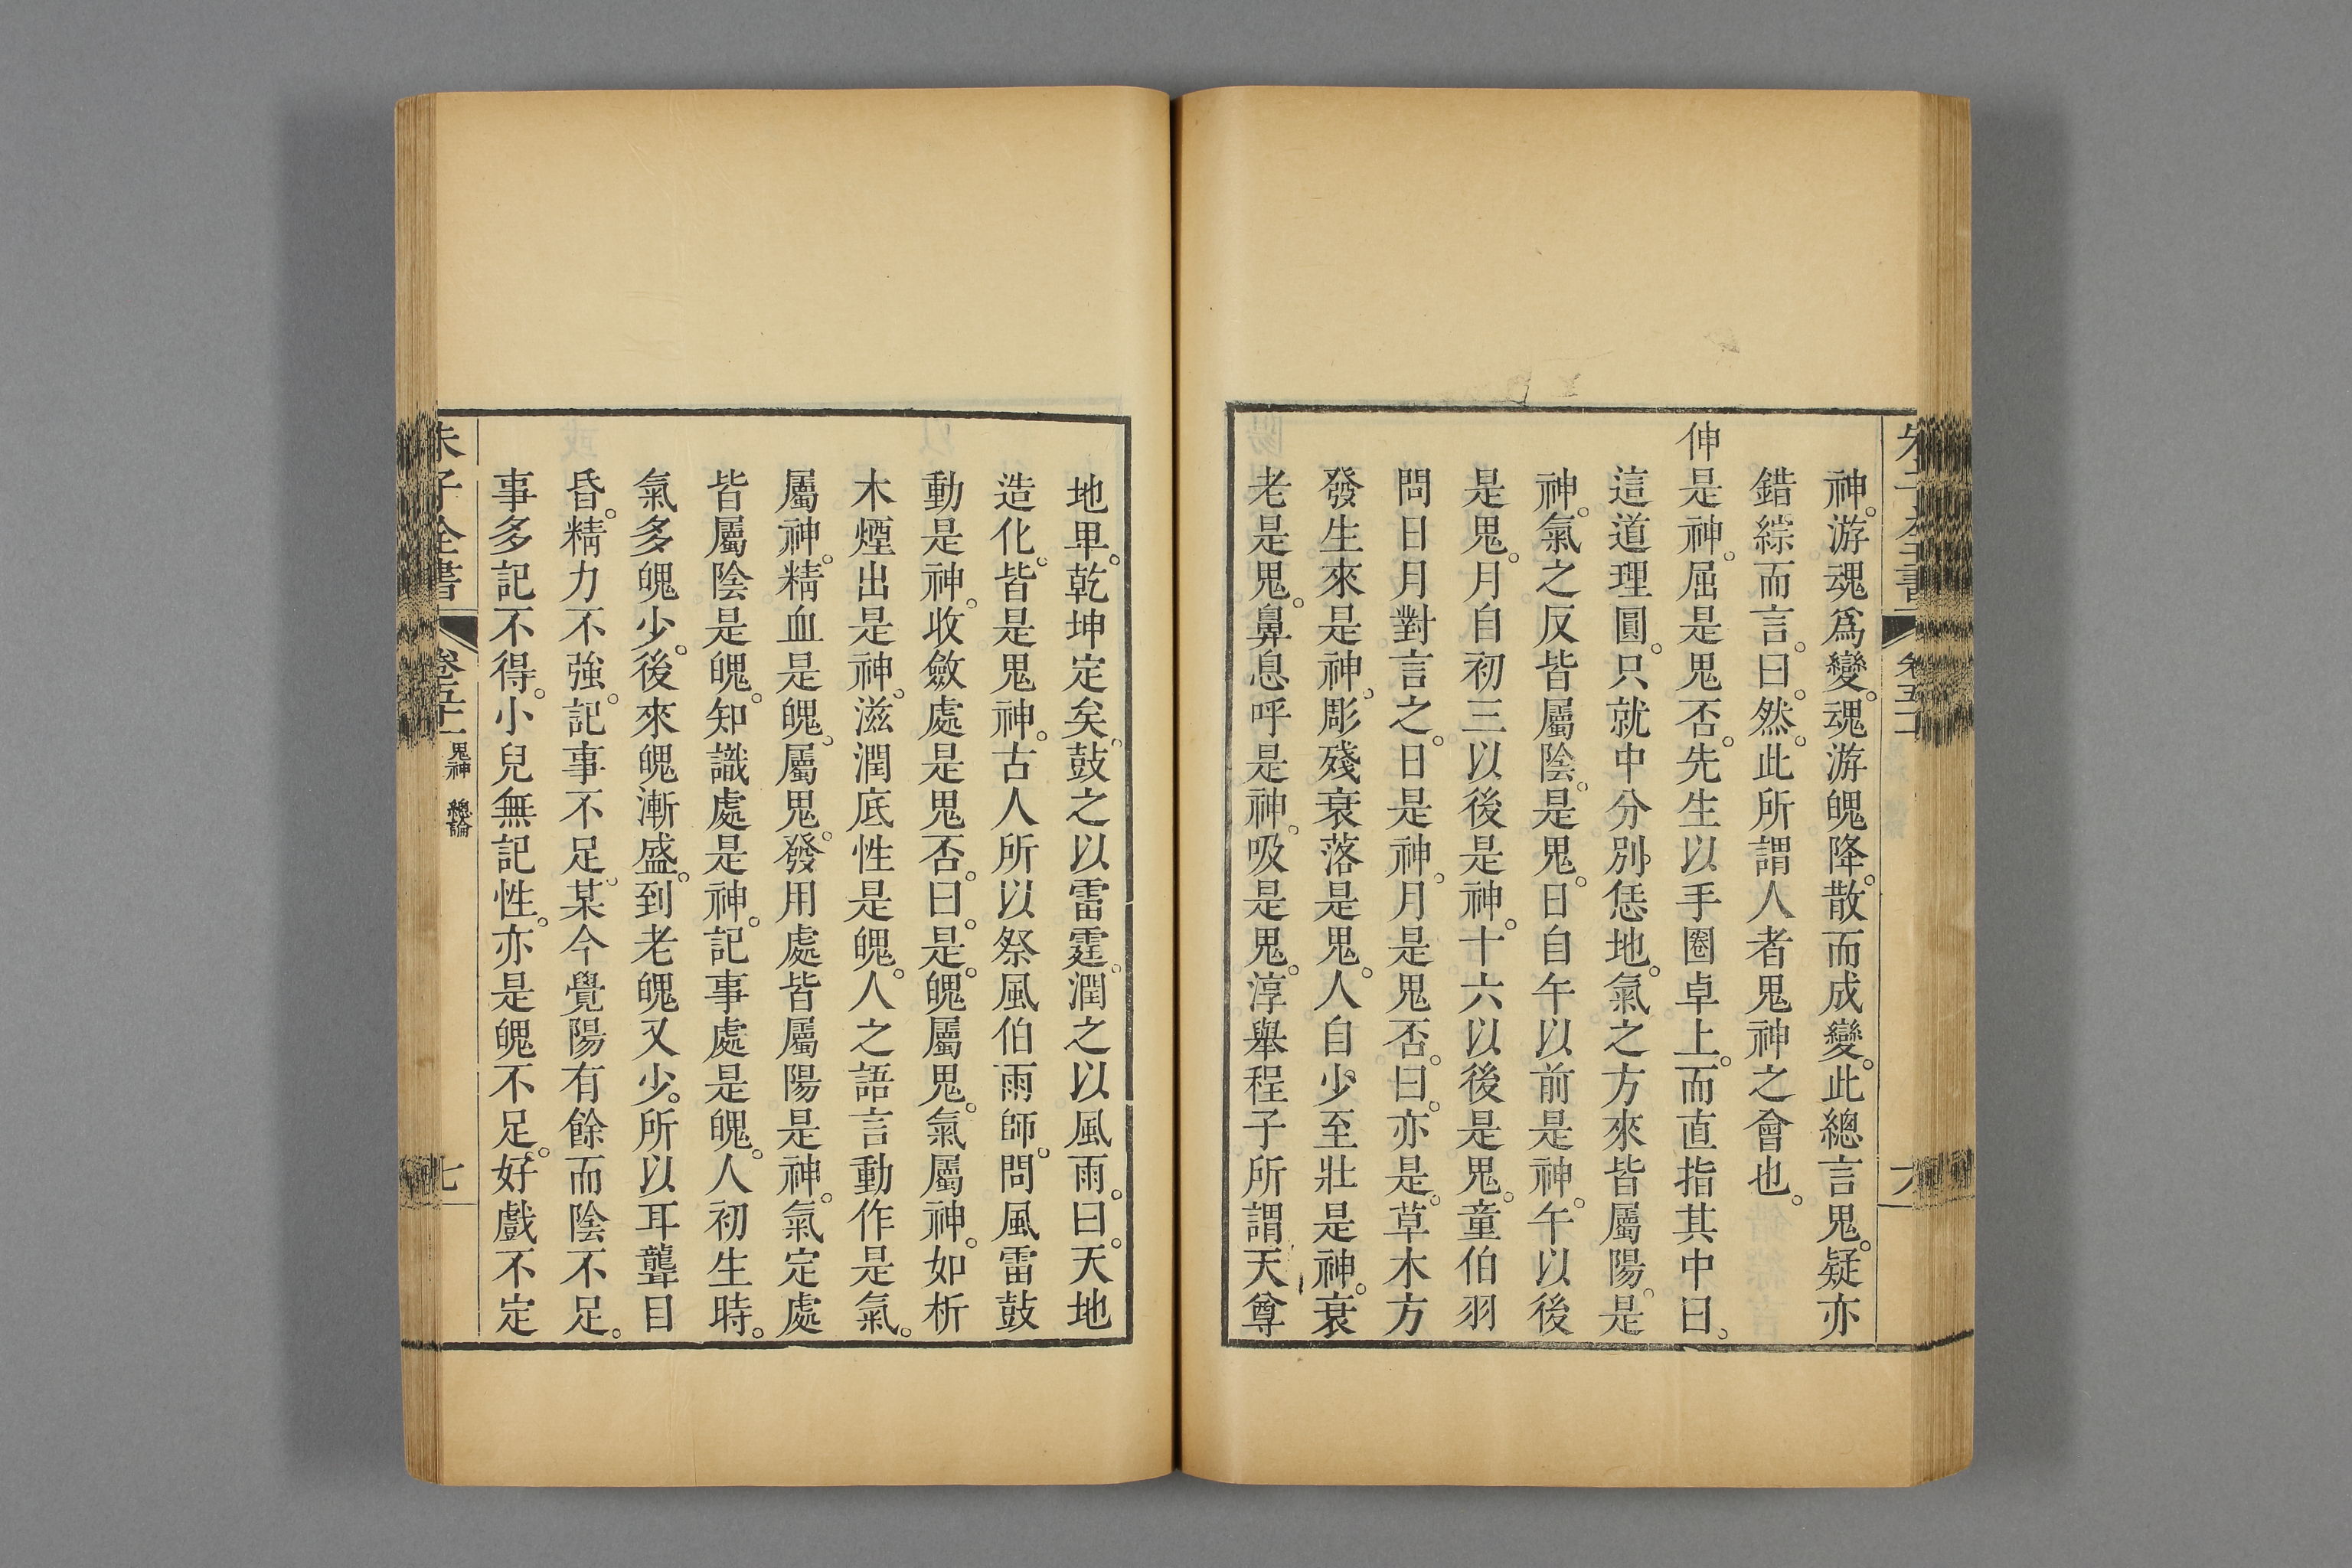 神。游魂爲變。魂游魄降。散而成變。此總言鬼。疑亦
錯綜而言。曰。然。此所謂人者鬼神之會也。
伸是神。屈是鬼否。先生以手圈卓上。而直指其中曰。
這道理圓。只就中分別恁地。氣之方來皆屬陽。是
神。氣之反皆屬陰。是鬼。日自午以前是神。午以後
是鬼。月自初三以後是神。十六以後是鬼。童伯羽
問日月對言之。日是神。月是鬼否。曰。亦是。草木方
發生來是神。彫殘衰落是鬼。人自少至壯是神。衰
老是鬼。鼻息呼是神。吸是鬼。淳舉程子所謂天尊
地卑。乾坤定矣。鼓之以雷霆。潤之以風雨。曰。天地
造化。皆是鬼神。古人所以祭風伯雨師。問風雷鼓
動是神。收斂處是鬼否。曰。是。魄屬鬼。氣屬神。如析
木煙出是神。滋潤底性是魄。人之語言動作是氣。
屬神。精血是魄。屬鬼。發用處皆屬陽是神。氣定處
皆屬陰是魄。知識處是神。記事處是魄。人初生時。
氣多魄少。後來魄漸盛。到老魄又少。所以耳聾目
昏。精力不強。記事不足。某今覺陽有餘而陰不足。
事多記不得。小兒無記性。亦是魄不足。好戲不定
朱子全書
卷五十一
鬼神 總論
七